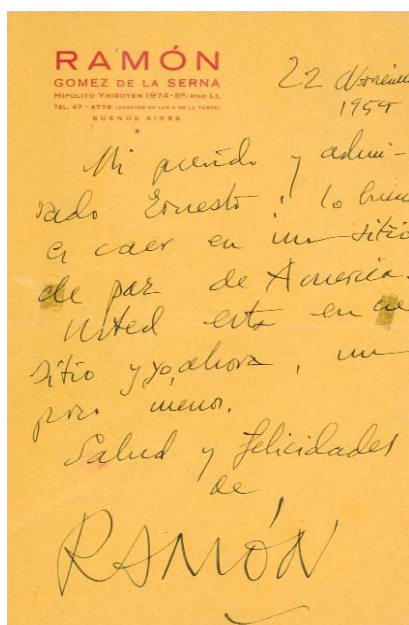 RAMÓN
GOMEZ DE LA SERNA
HIPOLITO YRIGOYEN 1974-6º. PISO LL.
TEL. 47 - 4775 (DESPUES DE LAS 5 DE LA TARDE)
BUENOS AIRES
22 Noviembre
1955
Mi querido y admi-
rado Ernesto: lo bueno
es caer en un sitio
de paz de America.
Usted esta en ese
sitio y yo, ahora, un
poco menos.
Salud y felicidades
de
RAMÓN